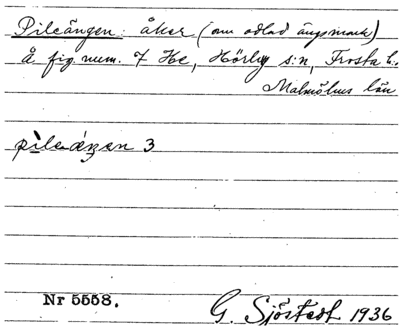 Pileängen: åker (om odlad ängsmark)
Å fig. num. 7 Hc, Hörby s:n, Frosta h.
Malmöhus län
pìleáŋen 3
Nr 5558.
G. Sjöstedt 1936